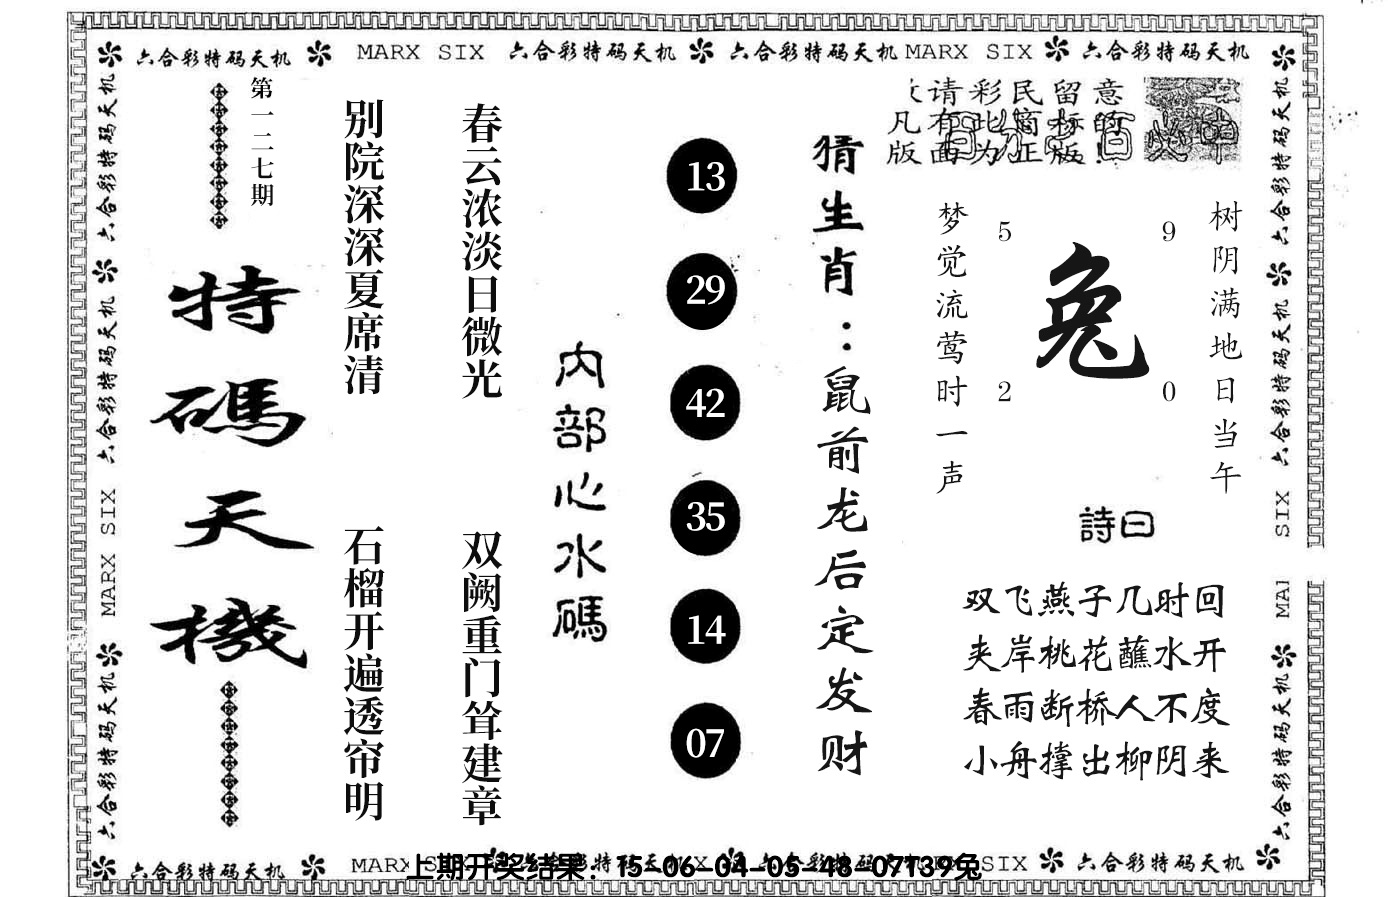 六合彩特码天机 MARX SIX 六合彩特码天机 六合彩特码天机 MARX SIX 六合彩特码天机
六合彩特码天机 六合彩特码天机 MARX SIX 六合彩特码天机
第一二七期
特碼天機
别院深深夏席清
石榴开遍透帘明
春云浓淡日微光
双阙重门耸建章
内部心水碼
13
29
42
35
14
07
猜生肖：鼠前龙后定发财
请彩民留意
凡有此简标的
版面为正版!
梦觉流莺时一声
5
9
兔
2
0
树阴满地日当午
詩曰
双飞燕子几时回
夹岸桃花蘸水开
春雨断桥人不度
小舟撑出柳阴来
六合彩特码天机 六合彩特码天机 SIX MAI 六合彩特码天机
六合彩特码天机 MARX SIX 六合彩特码天机
上期开奖结果：15-06-04-05-48-07T39兔